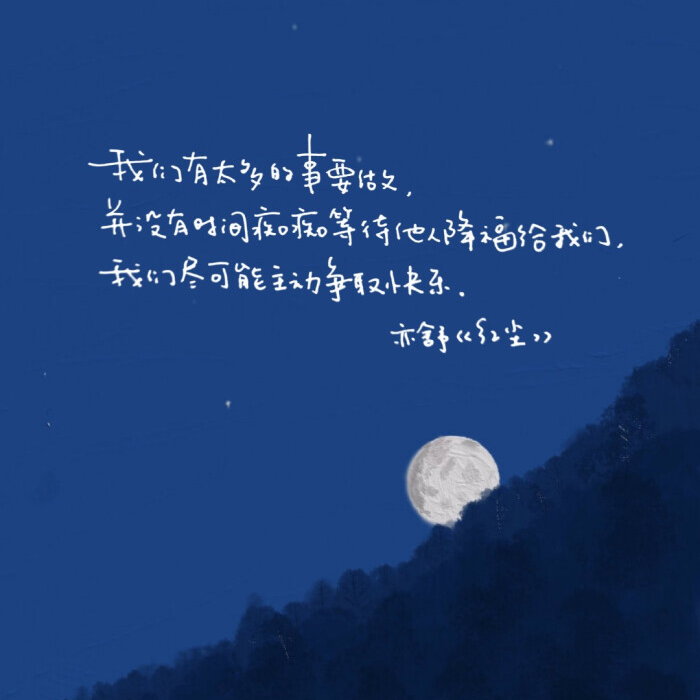 我们有太多的事要做，
并没有时间痴痴等待他人降福给我们，
我们尽可能主动争取快乐．
亦舒《红尘》